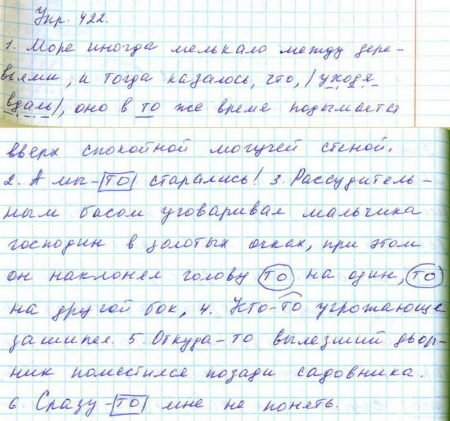 Упр. 422.
1. Море иногда мелькало между дере-
вьями, и тогда казалось, что, уходя
вдаль, оно в то же время подымается
вверх спокойной могучей стеной.
2. А мы-то старались! 3. Рассудитель-
ным басом уговаривал мальчика
господин в золотых очках, при этом
он наклонял голову то на один, то
на другой бок, 4. Кто-то угрожающе
зашипел. 5. Откуда-то вылезший двор-
ник поместился позади садовника.
6. Сразу-то мне не понять.